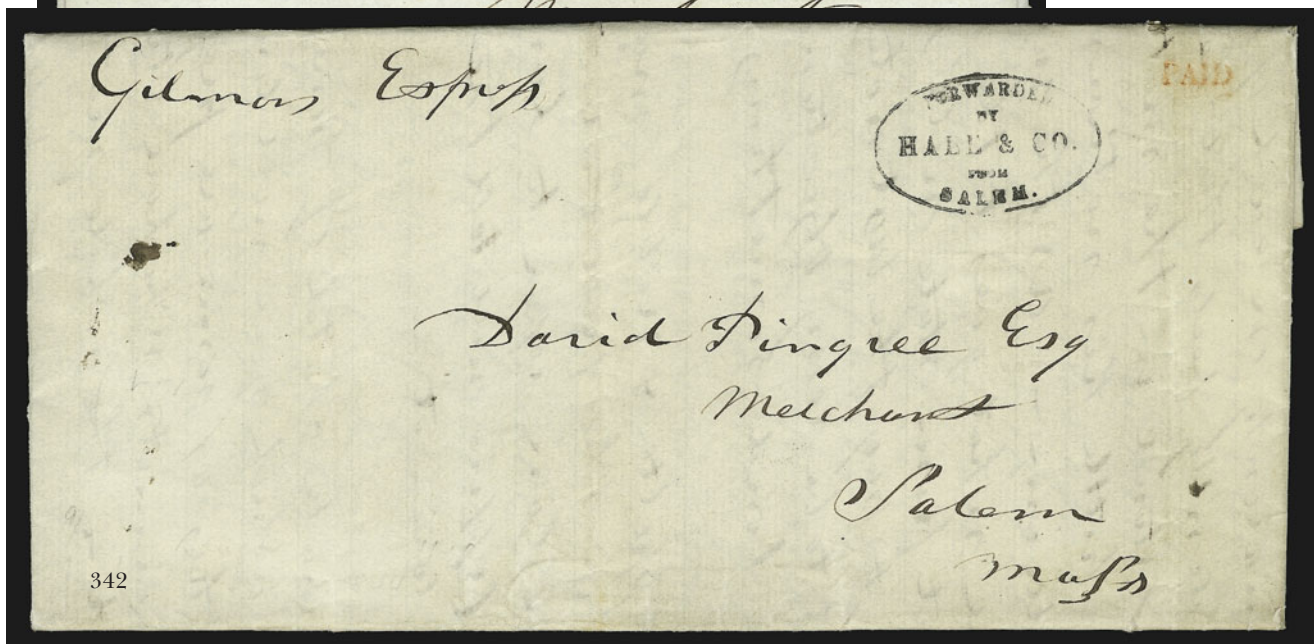 Gilmors Express
PAID
FORWARDED
BY
HALE & CO.
FROM
SALEM.
David Pingree Esq
Merchant
Salem
Mass
342